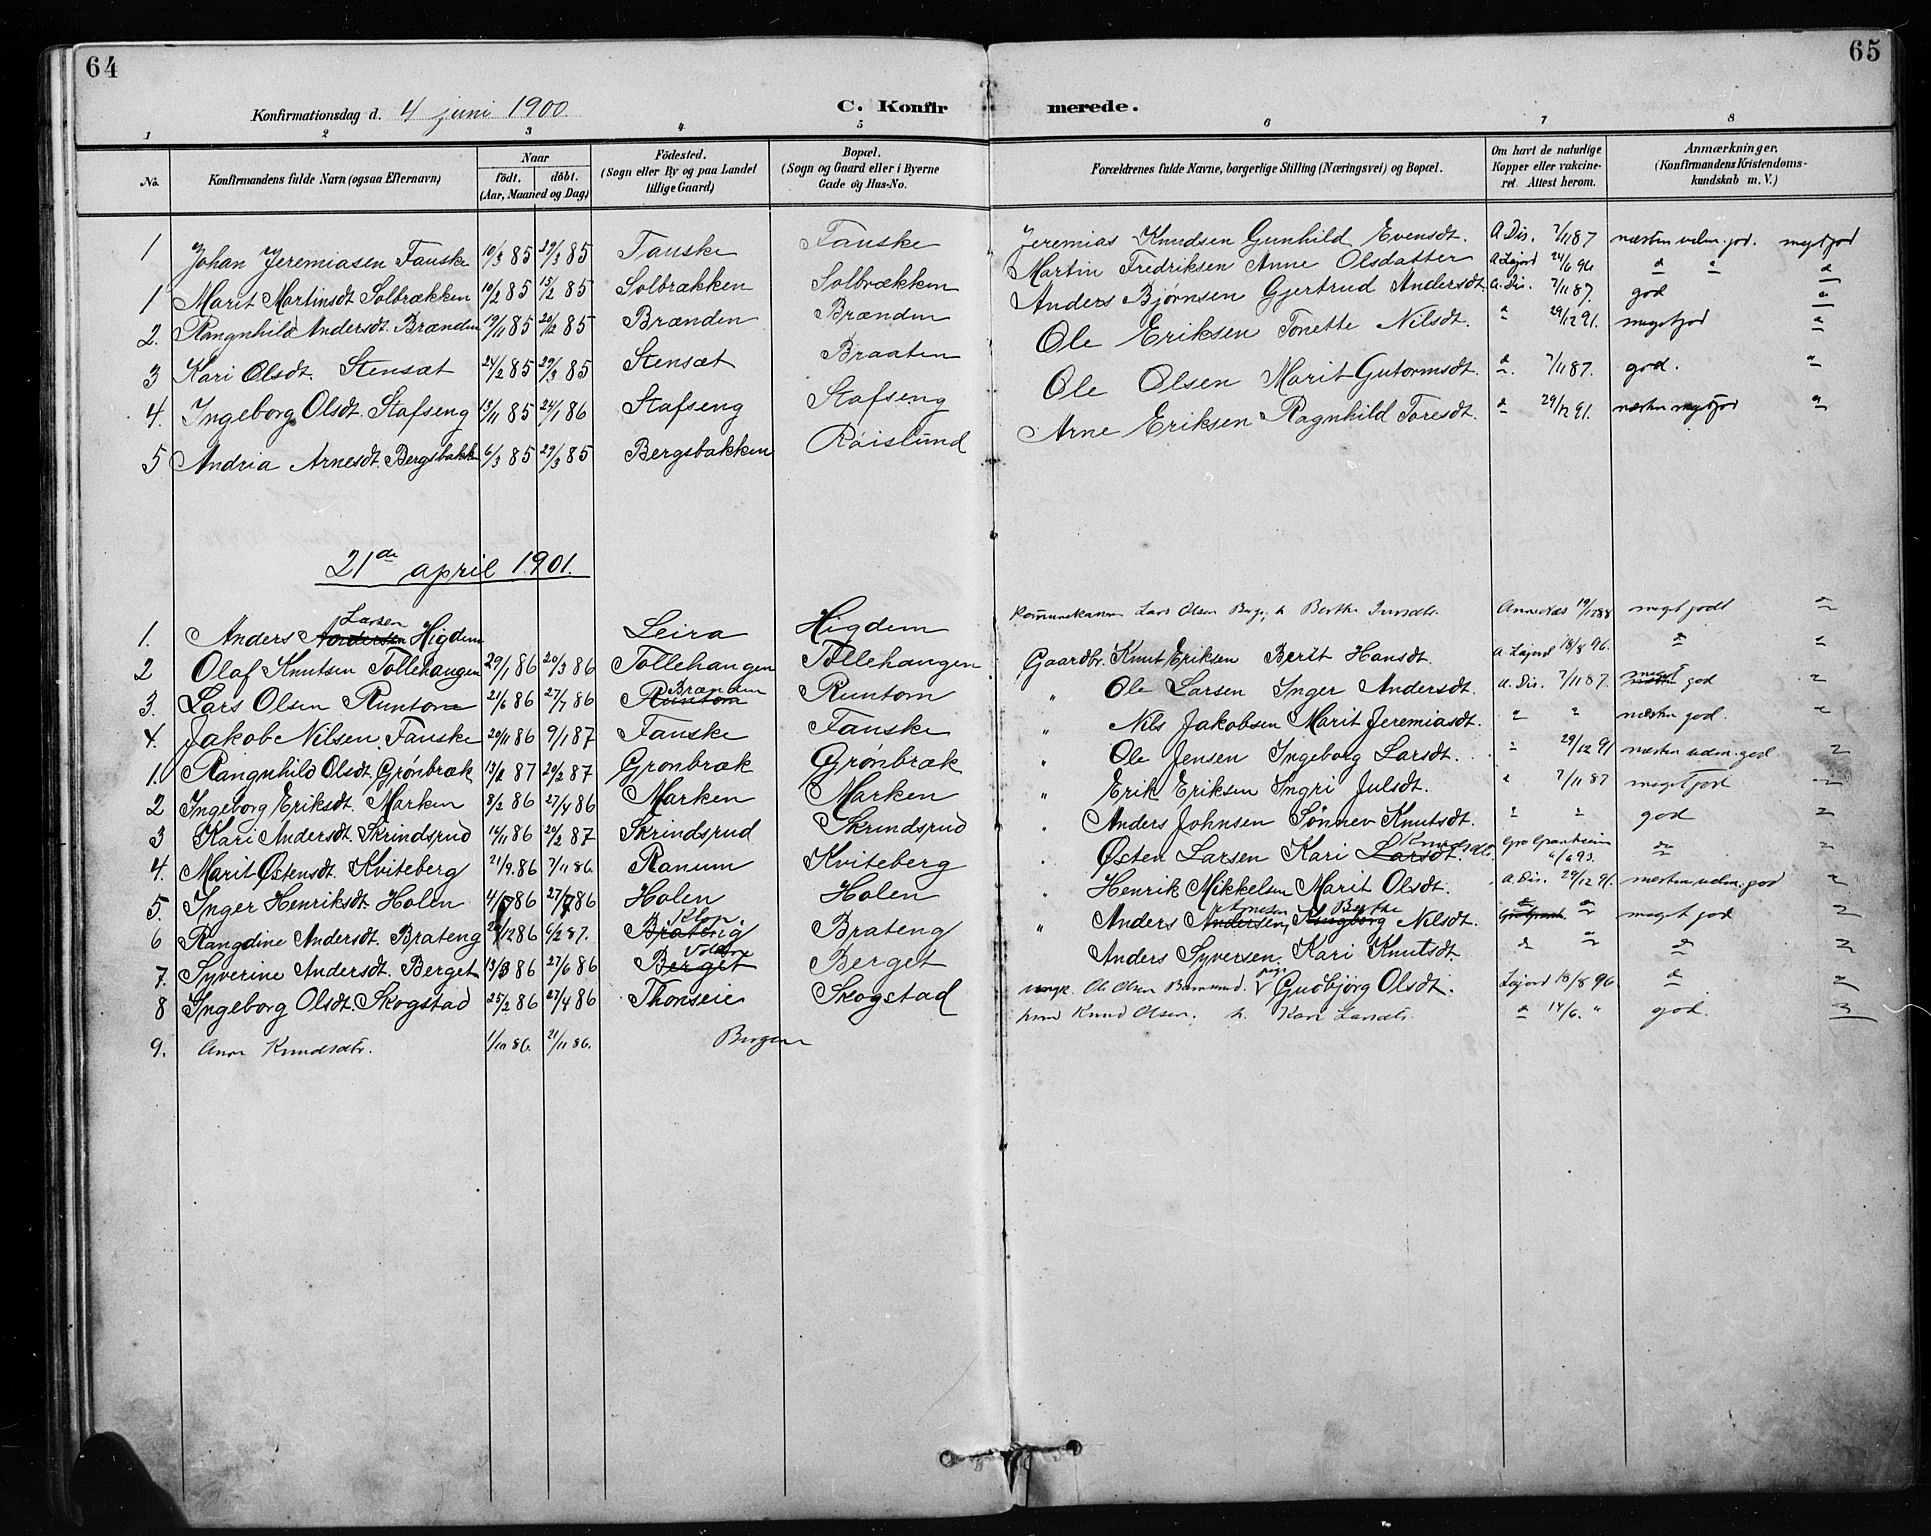 64
65
Konfirmationsdag d. 4 juni 1900.
C. Konfirmerede.
1 2 3 4 5 6 7 8
No. Konfirmandens fulde Navn (ogsaa Efternavn) Naar født. døbt. (Aar, Maaned og Dag) Födested. (Sogn eller By og paa Landet tillige Gaard) Bopæl. (Sogn og Gaard eller i Byerne Gade og Hus-No. Forældrenes fulde Navne, borgerlige Stilling (Næringsvei) og Bopæl. Om havt de naturlige Kopper eller vakcineret. Attest herom. Anmærkninger. (Konfirmandens Kristendomskundskab m. V.)
1 Johan Jeremiasen Fauske 10/3 85 29/3 85 Fauske Fauske Jeremias Knudsen Gunhild Evensdt. A. Dis. 7/11 87 næsten udm. god. megetgod
1 Marit Martinsdt Solbrækken 10/2 85 15/2 85 Solbrækken Solbrækken Martin Fredriksen Anne Olsdatter A Lajord 24/6 96 " " "
2. Rangnhild Andersdt. Brænden 19/11 85 20/12 85 Brænden Brænden Anders Bjørnsen Gjertrud Andersdt. A. Dis. 7/11 87. god "
3 Kari Olsdt. Stensæt 24/2 85 29/3 85 Stensæt Braaten Ole Eriksen Tonette Nilsdt. " 29/12 91. megetgod "
4. Ingeborg Olsdt. Stafseng 13/11 85 24/1 86 Stafseng Stafseng Ole Olsen Marit Gutormsdt. " 7/11 87. god. "
5 Andria Arnesdt. Bergsbakken 6/3 85 29/3 85 Bergsbakken Røislund Arne Eriksen Ragnhild Toresdt. " 29/12 91. næsten megetgod "
21de april 1901.
1. Anders Andersen Larsen Higdem Leira Higdem Lars Olsen Berge, h. Berthe 19/12 88 meget godt "
2 Olaf Knutsen Tollehaugen 29/1 86 20/3 86 Tollehaugen Tollehaugen Gaardbr. Knut Eriksen Berit Hansdt. A Lajord 18/8 96. " "
3. Lars Olsen Runtom 21/6 86 27/7 86 Runtom Brænden Runtom " Ole Larsen Inger Andersdt. A. Dis. 7/11 87. næsten meget god "
4. Jakob Nilsen Fauske 20/11 86 9/1 87 Fauske Fauske " Nils Jakobsen Marit Jeremiasdt. " " næsten god. "
1. Rangnhild Olsdt. Grønbræk 13/1 87 20/2 87 Grønbræk Grønbræk " Ole Jensen Ingeborg Larsdt. " 29/12 91 næsten udm. god "
2 Ingeborg Eriksdt. Marken 8/2 86 27/4 86 Marken Marken " Erik Eriksen Ingri Julsdt. " 7/11 87 megetgod "
3 Kari Andersdt. Skrindsrud 14/11 86 20/2 87 Skrindsrud Skrindsrud " Anders Johnsen Sønnev Knutsdt. " " god "
4. Marit Østensdt. Kviteberg 21/9. 86 7/11 86. Ranum Kviteberg " Østen Larsen Kari Larsdt. Knudsdt. 93. " "
5. Inger Henriksdt. Holen 4/7 86 27/7 86 Holen Holen " Henrik Mikkelsen Marit Olsdt. A. Dis. 29/12 91. næsten udm. god "
6 Rangdine Andersdt. Brateng 12 86 6/2 87. Brateng Klop. Brateng " Anders Andersen, Arnesen Ingeborg Berthe Nilsdt. " " meget god "
7. Syverine Andersdt. Berget 13/3 86 27/6 86 Berget Volden Berget Anders Syversen Kari Knutsdt. " " " "
8 Ingeborg Olsdt. Skogstad 25/2 86 27/4 86 Thonseie Skogstad ungk. Ole Olsen & pige Gudbjørg Olsdt. Lajord 18/8 96 " "
9. Anne Knudsdtr. 1/10 86. 21/11 86. Burgen Knud Olsen. h. Kari Larsdtr. " 14/6. " god. "